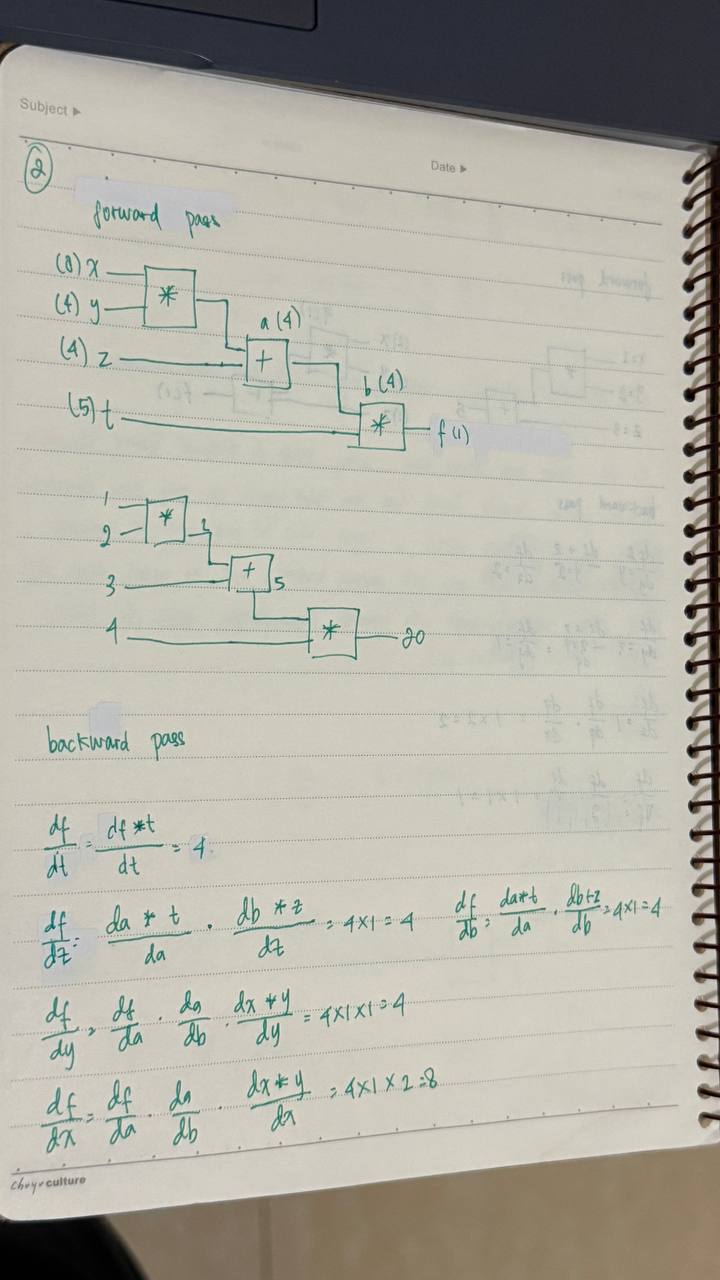 Subject ▶
Date ▶
②
forward pass
(8) x
*
(4) y
a (4)
(4) z
+
b (4)
(5) t
*
f (1)
1
*
2
2
3
+
5
4
*
20
backward pass
df/dt = df*t/dt = 4
df/dz = da * t/da · db * z/dz = 4×1 = 4
df/db = da*t/da · db+z/db = 4×1=4
df/dy = df/da · da/db · dx*y/dy = 4×1×1=4
df/dx = df/da · da/db · dx*y/dx = 4×1×2=8
culture